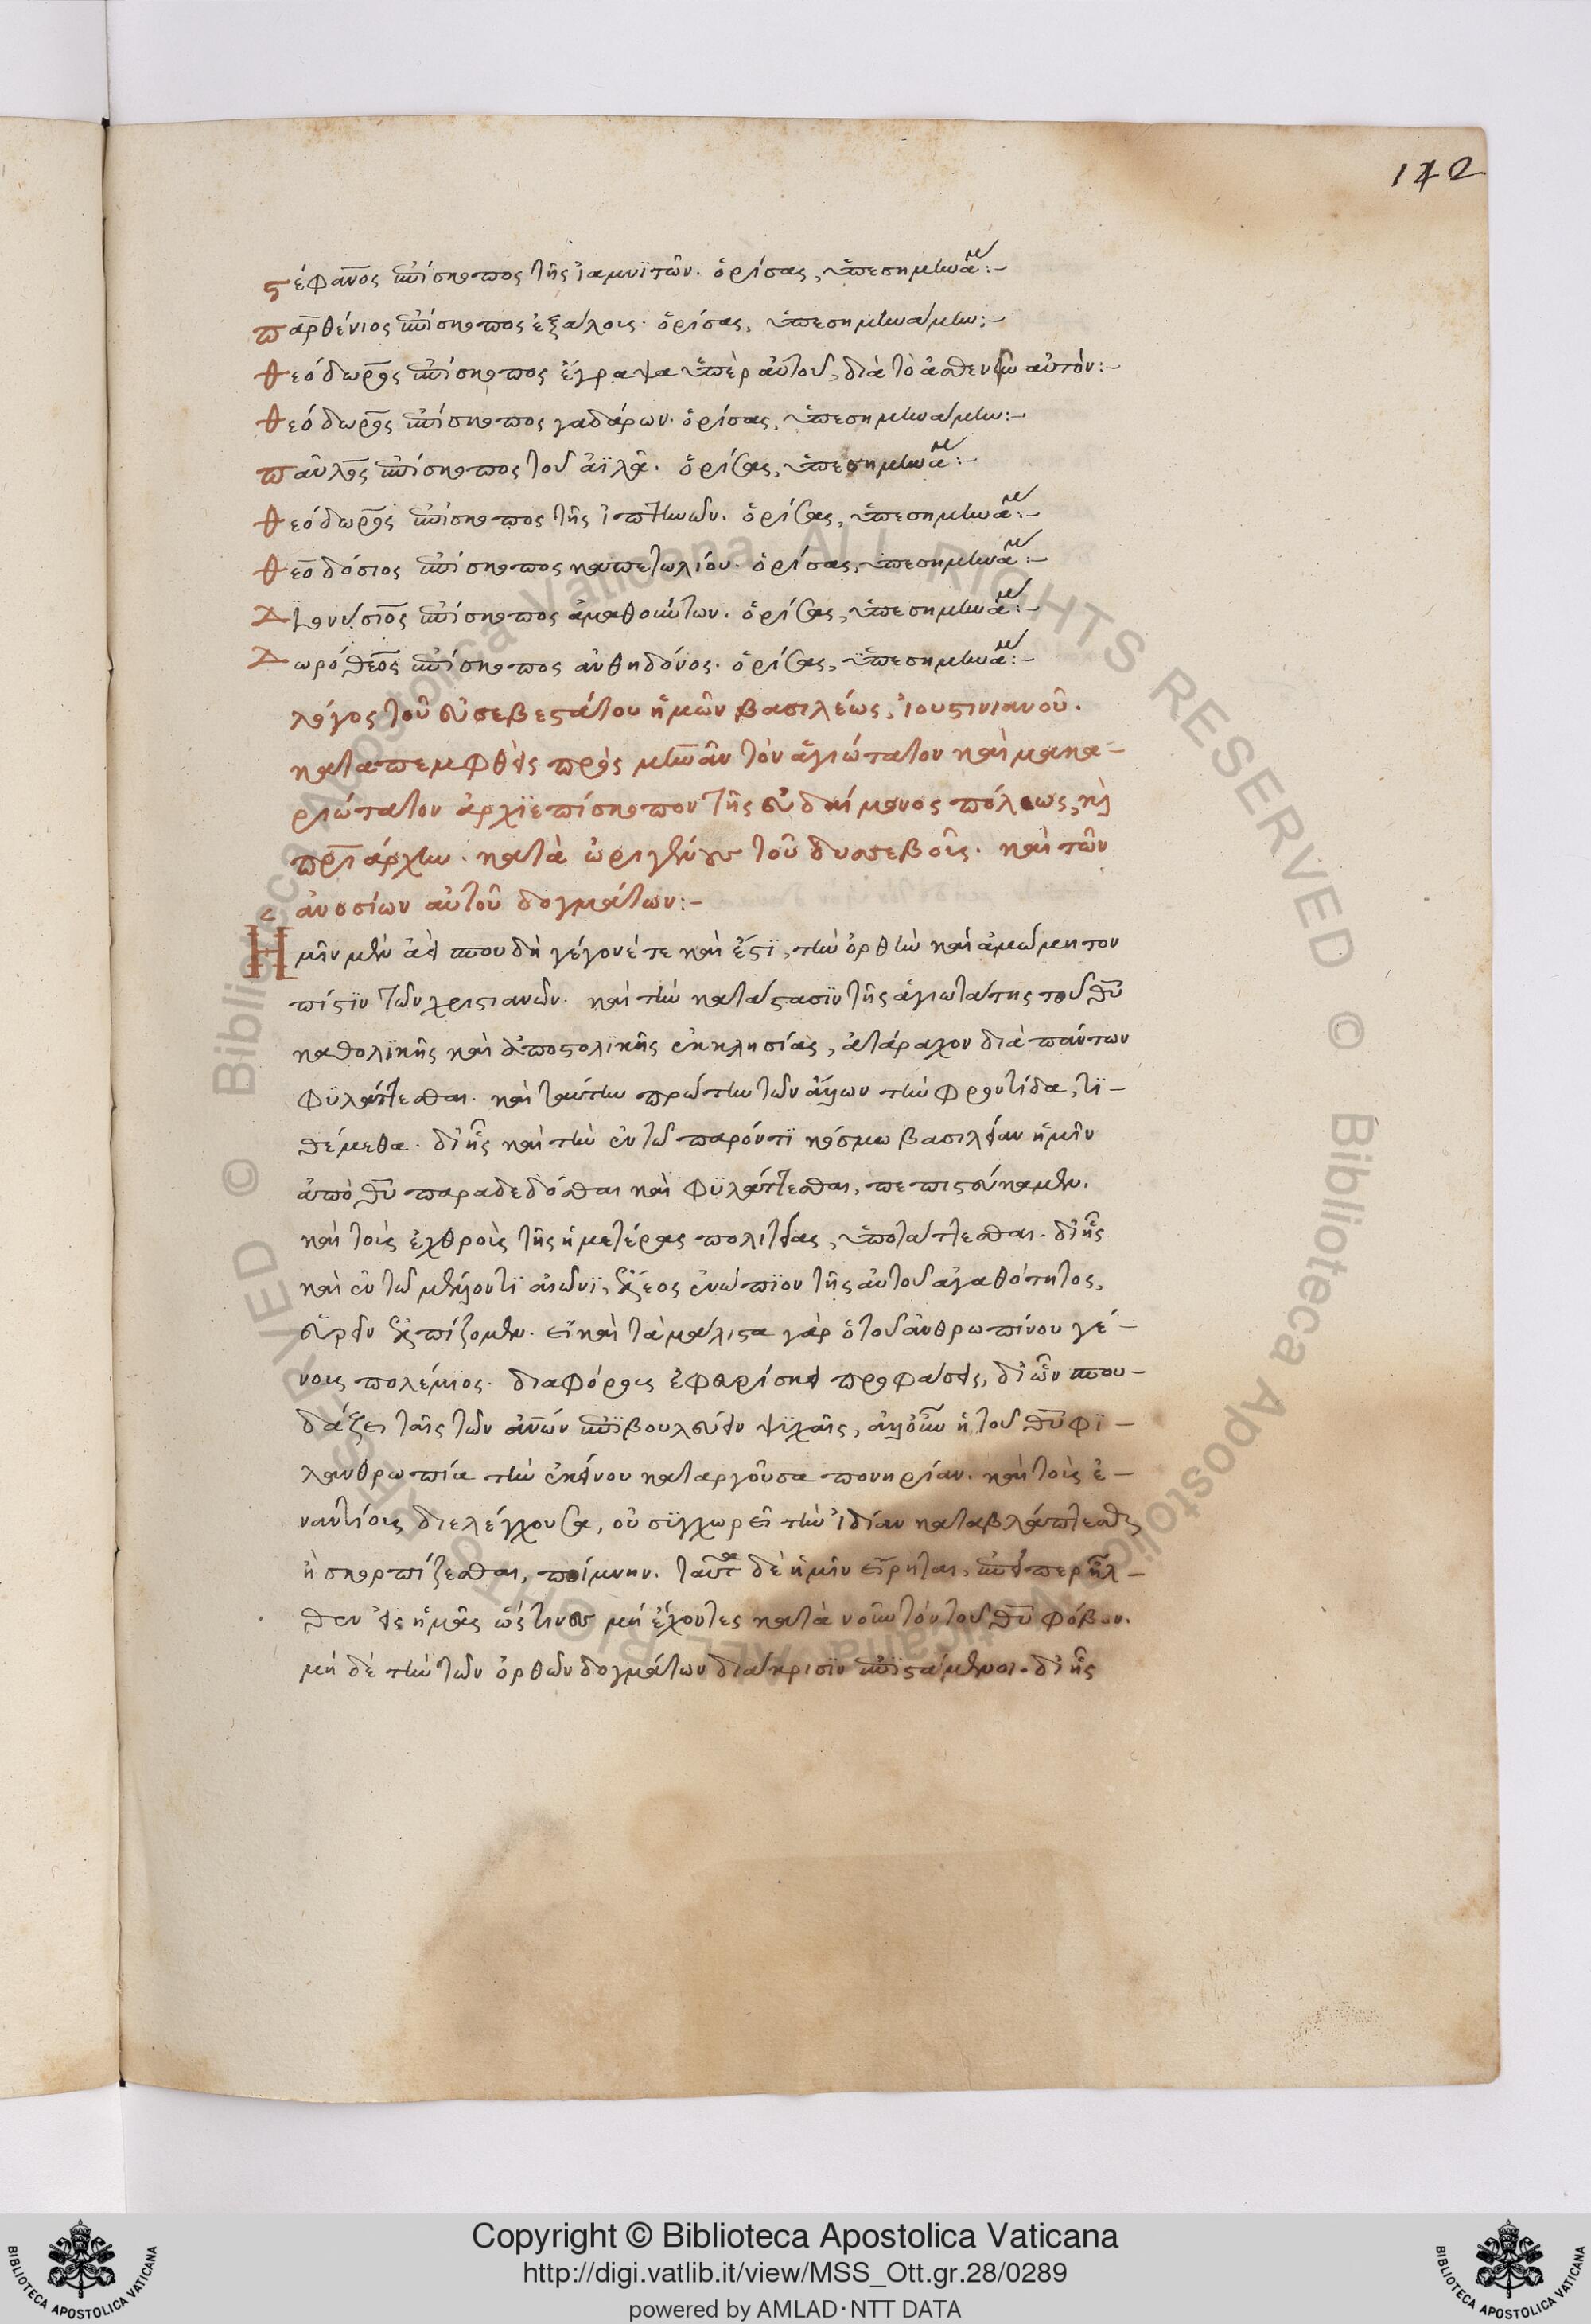 142
στέφανος ἐπίσκοπος τῆς ἰαμνϊτῶν. ὁρίσας, ὑπεσημηνάμ:-
παρθένιος ἐπίσκοπος ἐξάλους. ὁρίσας, ὑπεσημηνάμην:-
θεόδωρος ἐπίσκοπος ἔγραψα ὑπὲρ αὐτοῦ, διὰ τὸ ἀσθενεῖν αὐτόν:-
θεόδωρος ἐπίσκοπος γαδάρων. ὁρίσας, ὑπεσημηνάμην:-
παῦλος ἐπίσκοπος τοῦ ἀϊλᾶ. ὁρίσας, ὑπεσημηνάμ:-
θεόδωρος ἐπίσκοπος τῆς ἱπηνῶν. ὁρίσας, ὑπεσημηνάμ:-
θεοδόσιος ἐπίσκοπος καπετωλίου. ὁρίσας, ὑπεσημηνάμ:-
Διονύσιος ἐπίσκοπος ἀμαθούντων. ὁρίσας, ὑπεσημηνάμ:-
Δωρόθεος ἐπίσκοπος ἀνθηδόνος. ὁρίσας, ὑπεσημηνάμ:-
λόγος τοῦ εὐσεβεστάτου ἡμῶν βασιλέως, ἰουστινιανοῦ.
καταπεμφθεὶς πρὸς μηνᾶν τὸν ἁγιώτατον καὶ μακα-
ριώτατον ἀρχϊεπίσκοπον τῆς εὐδαίμονος πόλεως, καὶ
πριάρχην. κατὰ ὠριγένους τοῦ δυσσεβοῦς. καὶ τῶν
ἀνοσίων αὐτοῦ δογμάτων:-
Ημῖν μὲν ἀεὶ σπουδὴ γέγονέ τε καὶ ἔστϊ, τὴν ὀρθὴν καὶ ἀμώμητον
πίστϊν τῶν χριστιανῶν. καὶ τὴν κατάστασϊν τῆς ἁγιωτάτης τοῦ θυ
καθολϊκῆς καὶ ἀποστολϊκῆς ἐκκλησίας, ἀτάραχον διὰ πάντων
φϋλάττεσθαι. καὶ ταύτην πρώτην τῶν ἄλλων τὴν φροντίδα, τϊ-
θέμεθα. δι' ἧς καὶ τὴν ἐν τῶ παρόντϊ κόσμω βασιλείαν ἡμῖν
ἀπὸ θυ παραδεδόσθαι καὶ φϋλάττεσθαι, πεπιστεύκαμεν.
καὶ τοὺς ἐχθροὺς τῆς ἡμετέρας πολιτείας, ὑποτάττεσθαι. δι' ἧς
καὶ ἐν τῶ μέλλοντϊ αἰῶνϊ, ἔλεος ἐνώπϊον τῆς αὐτοῦ ἀγαθότητος,
εὑρεῖν ἐλπίζομεν. εἰ καὶ τὰ μάλιστα γὰρ ὁ τοῦ ἀνθρωπίνου γέ-
νους πολέμϊος. διαφόρους ἐφευρίσκει προφάσεις, δι' ὧν σπου-
δάζει ταῖς τῶν ἀνῶν ἐπϊβουλεύειν ψϋχαῖς, ἀλλ' οὖν ἡ τοῦ θυ φϊ-
λανθρωπία τὴν ἐκείνου καταργοῦσα πονηρίαν. καὶ τοὺς ἐ-
ναντίους διελέγχουσα, οὐ συγχωρεῖ τὴν ἰδίαν καταβλάπτεσθαι
ἢ σκορπίζεσθαι, ποίμνην. ταῦτα δὲ ἡμῖν εἴρηται, ἐπείπερ ἦλ-
θεν εἰς ἡμᾶς ὥς τινες μὴ ἔχοντες κατὰ νοῦν τὸν τοῦ θυ φόβον.
μὴ δὲ τὴν τῶν ὀρθῶν δογμάτων διάκρισϊν ἐπϊστάμενοι. δι' ἧς
Copyright © Biblioteca Apostolica Vaticana
http://digi.vatlib.it/view/MSS_Ott.gr.28/0289
powered by AMLAD·NTT DATA